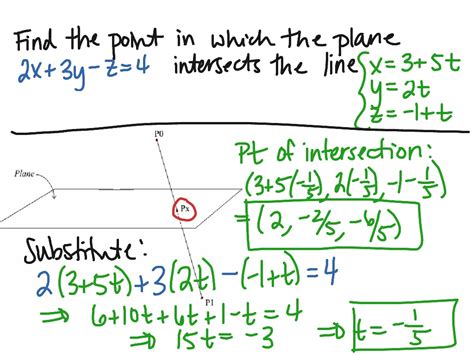 Find the point in which the plane
2x+3y-z=4 intersects the line { x=3+5t
y=2t
z=-1+t
P0
Plane
Px
P1
Pt of intersection:
(3+5(-1/5), 2(-1/5), -1-1/5)
= (2, -2/5, -6/5)
Substitute:
2(3+5t)+3(2t)-(-1+t)=4
⇒ 6+10t+6t+1-t=4
⇒ 15t=-3 ⇒ t=-1/5